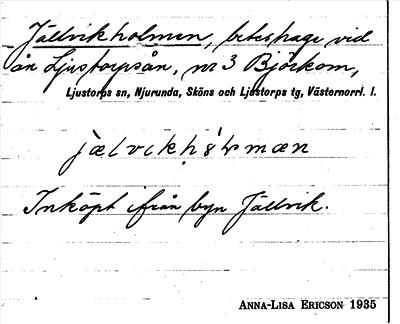 Jällvikholmen, beteshage vid
ån Ljustorpsån, nr 3 Björkom,
Ljustorps sn, Njurunda, Sköns och Ljustorps tg, Västernorrl. l.
Inköpt ifrån byn Jällvik.
ANNA-LISA ERICSON 1935